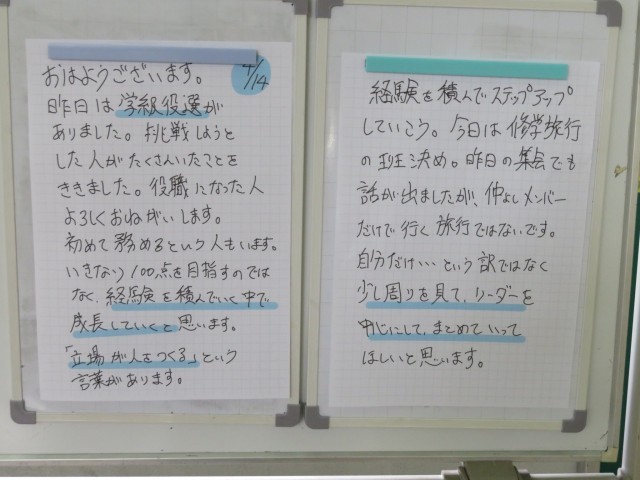 おはようございます。
4/14
昨日は学級役選が
ありました。挑戦しようと
した人がたくさんいたことを
ききました。役職になった人
よろしくおねがいします。
初めて務めるという人もいます。
いきなり100点を目指すのでは
なく、経験を積んでいく中で
成長していくと思います。
「立場が人をつくる」という
言葉があります。
経験を積んでステップアップ
していこう。今日は修学旅行
の班決め。昨日の集会でも
話が出ましたが、仲よしメンバー
だけで行く旅行ではないです。
自分だけ…という訳ではなく
少し周りを見て、リーダーを
中心にして、まとめていって
ほしいと思います。